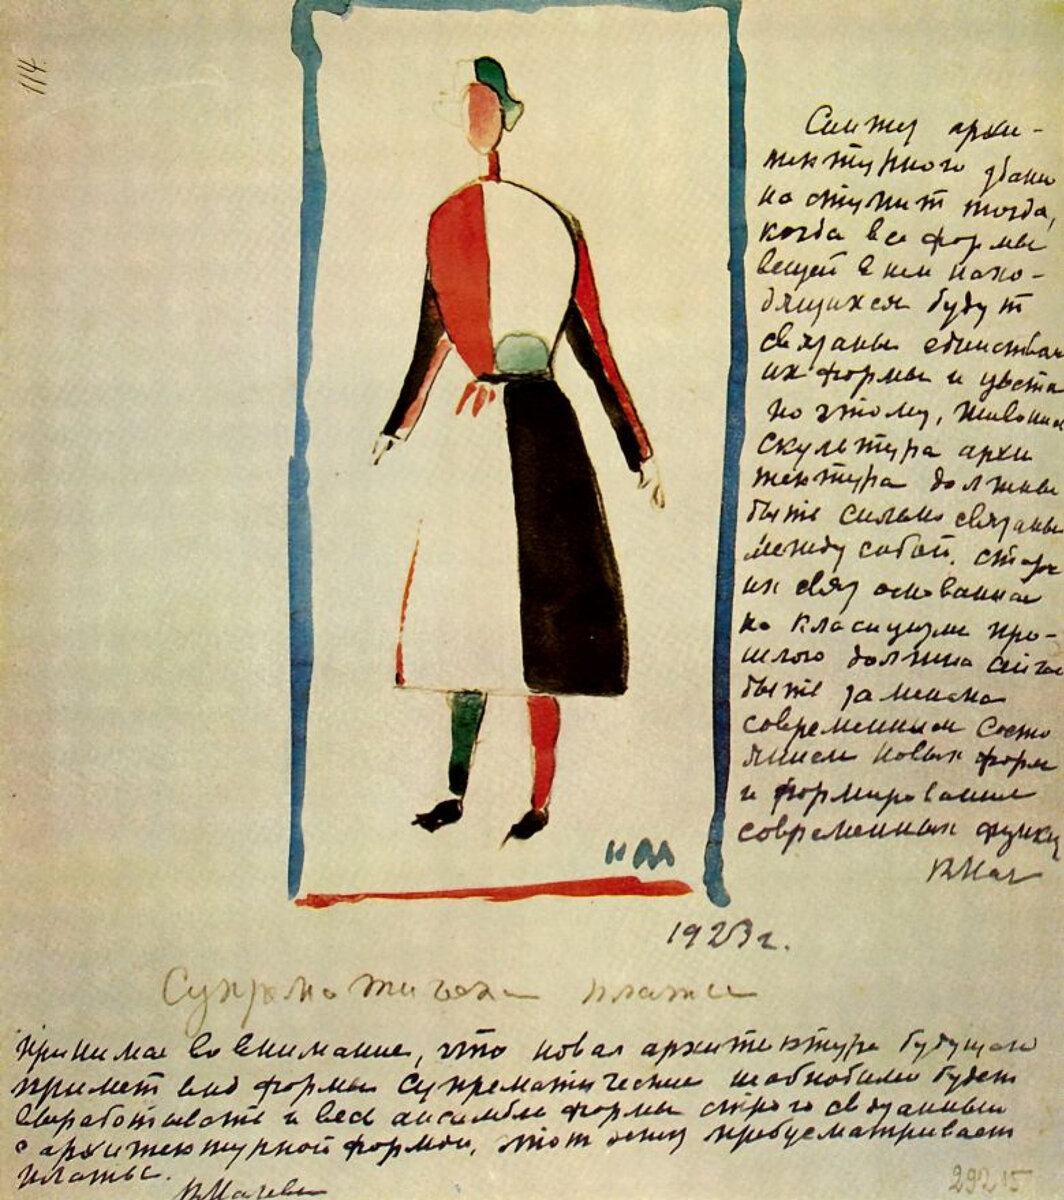 114.
Синтез архи-
тектурного здани
наступит тогда,
когда все формы
вещей в нем нахо-
дящихся будут
связаны единством
их формы и цвета
по этому, живопись
скульптура архи
тектура должны
быть сильно связаны
между собой. старая
их связ основанная
на класицизме про-
шлого должна сейчас
быть заменена
современным состо
янием новых форм
и формирование
современных функц
КМал
КМ
1923 г.
Супрематическая платье
Принимая во внимание, что новая архитектура будущего
примет вид формы супрематические необходимо будет
вырабатывать и весь ансамбль формы строго связанный
с архитектурной формой, этот эскиз предусматривает
платье.
КМалеви
29215